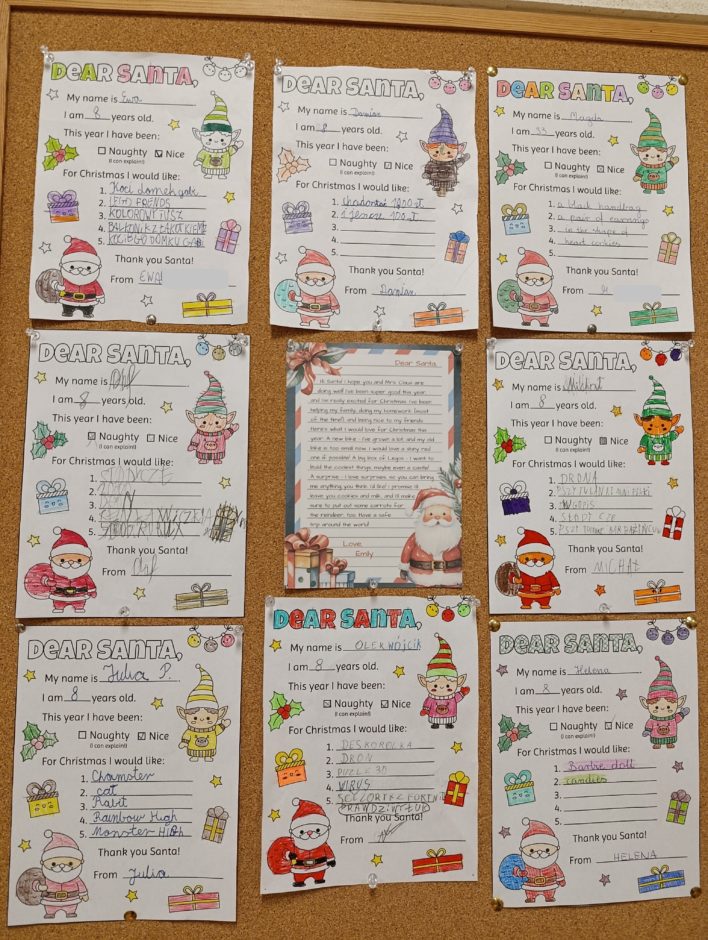 DEAR SANTA,
My name is Ewa
I am 8 years old.
This year I have been:
Naughty Nice
(I can explain!)
For Christmas I would like:
1. Koci domek gabi
2. LEGO FRIENDS
3. KOLOROWY TUSZ
4. BALKONIK Z
5. KOCIEGO DOMKU GABI
Thank you Santa!
From EWA
DEAR SANTA,
My name is Damian
I am 8 years old.
This year I have been:
Naughty Nice
(I can explain!)
For Christmas I would like:
1.
2.
3.
4.
5.
Thank you Santa!
From Damian
DEAR SANTA,
My name is Magda
I am 33 years old.
This year I have been:
Naughty Nice
(I can explain!)
For Christmas I would like:
1. a black handbag
2. a pair of earrings
3. in the shape of
4. heart cookies
5.
Thank you Santa!
From
DEAR SANTA,
My name is
I am 8 years old.
This year I have been:
Naughty Nice
(I can explain!)
For Christmas I would like:
1.
2.
3.
4.
5.
Thank you Santa!
From
Dear Santa,
Hi Santa! I hope you and Mrs. Claus are
doing well! I've been super good this year,
and I'm really excited for Christmas. I've been
helping my family, doing my homework (most
of the time!), and being nice to my friends.
Here's what I would love for Christmas this
year: A new bike - I've grown a lot, and my old
bike is too small now. I would love a shiny red
one if possible! A big box of Legos - I want to
build the coolest things, maybe even a castle!
A surprise - I love surprises, so you can bring
me anything you think I'd like! I promise I'll
leave you cookies and milk, and I'll make
sure to put out some carrots for
the reindeer, too. Have a safe
trip around the world!
Love,
Emily
DEAR SANTA,
My name is
I am 8 years old.
This year I have been:
Naughty Nice
(I can explain!)
For Christmas I would like:
1. DRONA
2.
3.
4.
5.
Thank you Santa!
From MICHAŁ
DEAR SANTA,
My name is Julia P.
I am 8 years old.
This year I have been:
Naughty Nice
(I can explain!)
For Christmas I would like:
1. Chamster
2. cat
3. Rabit
4. Rainbow High
5. Monster High
Thank you Santa!
From Julia
DEAR SANTA,
My name is OLEK WÓJCIK
I am 8 years old.
This year I have been:
Naughty Nice
(I can explain!)
For Christmas I would like:
1. DESKOROLKA
2. DRON
3. PUZLE 3D
4. WIRUS
5.
Thank you Santa!
From
DEAR SANTA,
My name is Helena
I am 8 years old.
This year I have been:
Naughty Nice
(I can explain!)
For Christmas I would like:
1. Barbie doll
2. candies
3.
4.
5.
Thank you Santa!
From HELENA